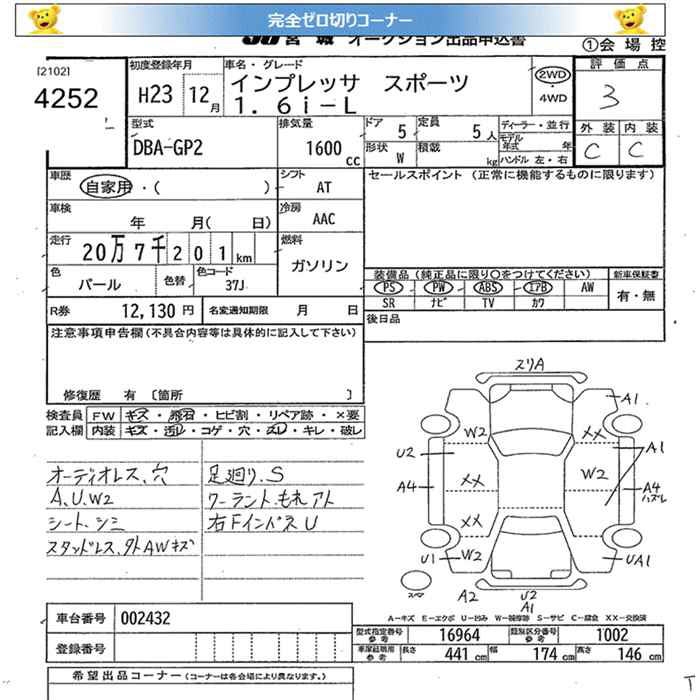 完全ゼロ切りコーナー
JU 宮城 オークション出品申込書 ①会場控
[2102]
4252
初度登録年月
H23 12月
車名・グレード
インプレッサ スポーツ
1.6i-L
2WD
・
4WD
評価点
3
外装 内装
C C
型式
DBA-GP2
排気量
1600 cc
ドア 5
定員 5人
形状 W
積載 kg
ディーラー・並行
モデル年式 年
ハンドル 左・右
車歴
自家用・( )
シフト
AT
セールスポイント (正常に機能するものに限ります)
車検
年 月( 日)
冷房
AAC
走行
20万7千201km
燃料
ガソリン
色
パール
色替
色コード
37J
装備品 (純正品に限り〇をつけてください) 新車保証書
PS PW ABS エアB AW 有・無
SR ナビ TV カワ
R券 12,130 円
名変通知期限 月 日
後日品
注意事項申告欄 (不具合内容等は具体的に記入して下さい)
修復歴 有 〔箇所 〕
検査員 FW キズ・飛石・ヒビ割・リペア跡・×要
記入欄 内装 キズ・汚れ・コゲ・穴・スレ・キレ・破レ
オーディオレス、穴
A、U、W2
シート、シミ
スタッドレス、外AWキズ
足廻り、S
クーラント、もれアト
右FインパネU
スリA
A1
W2
XX
U2
A1
XX
W2
A4
A4
ハズレ
XX
U1
W2
UA1
スペア
A2
U2
A1
A-キズ E-エクボ U-凹み W-補修跡 S-サビ C-腐食 XX-交換済
車台番号 002432
登録番号
型式指定番号 参考 16964
類別区分番号 参考 1002
車庫証明用 参考 長さ 441 cm 幅 174 cm 高さ 146 cm
希望出品コーナー (コーナーは各会場により異なります。)
T